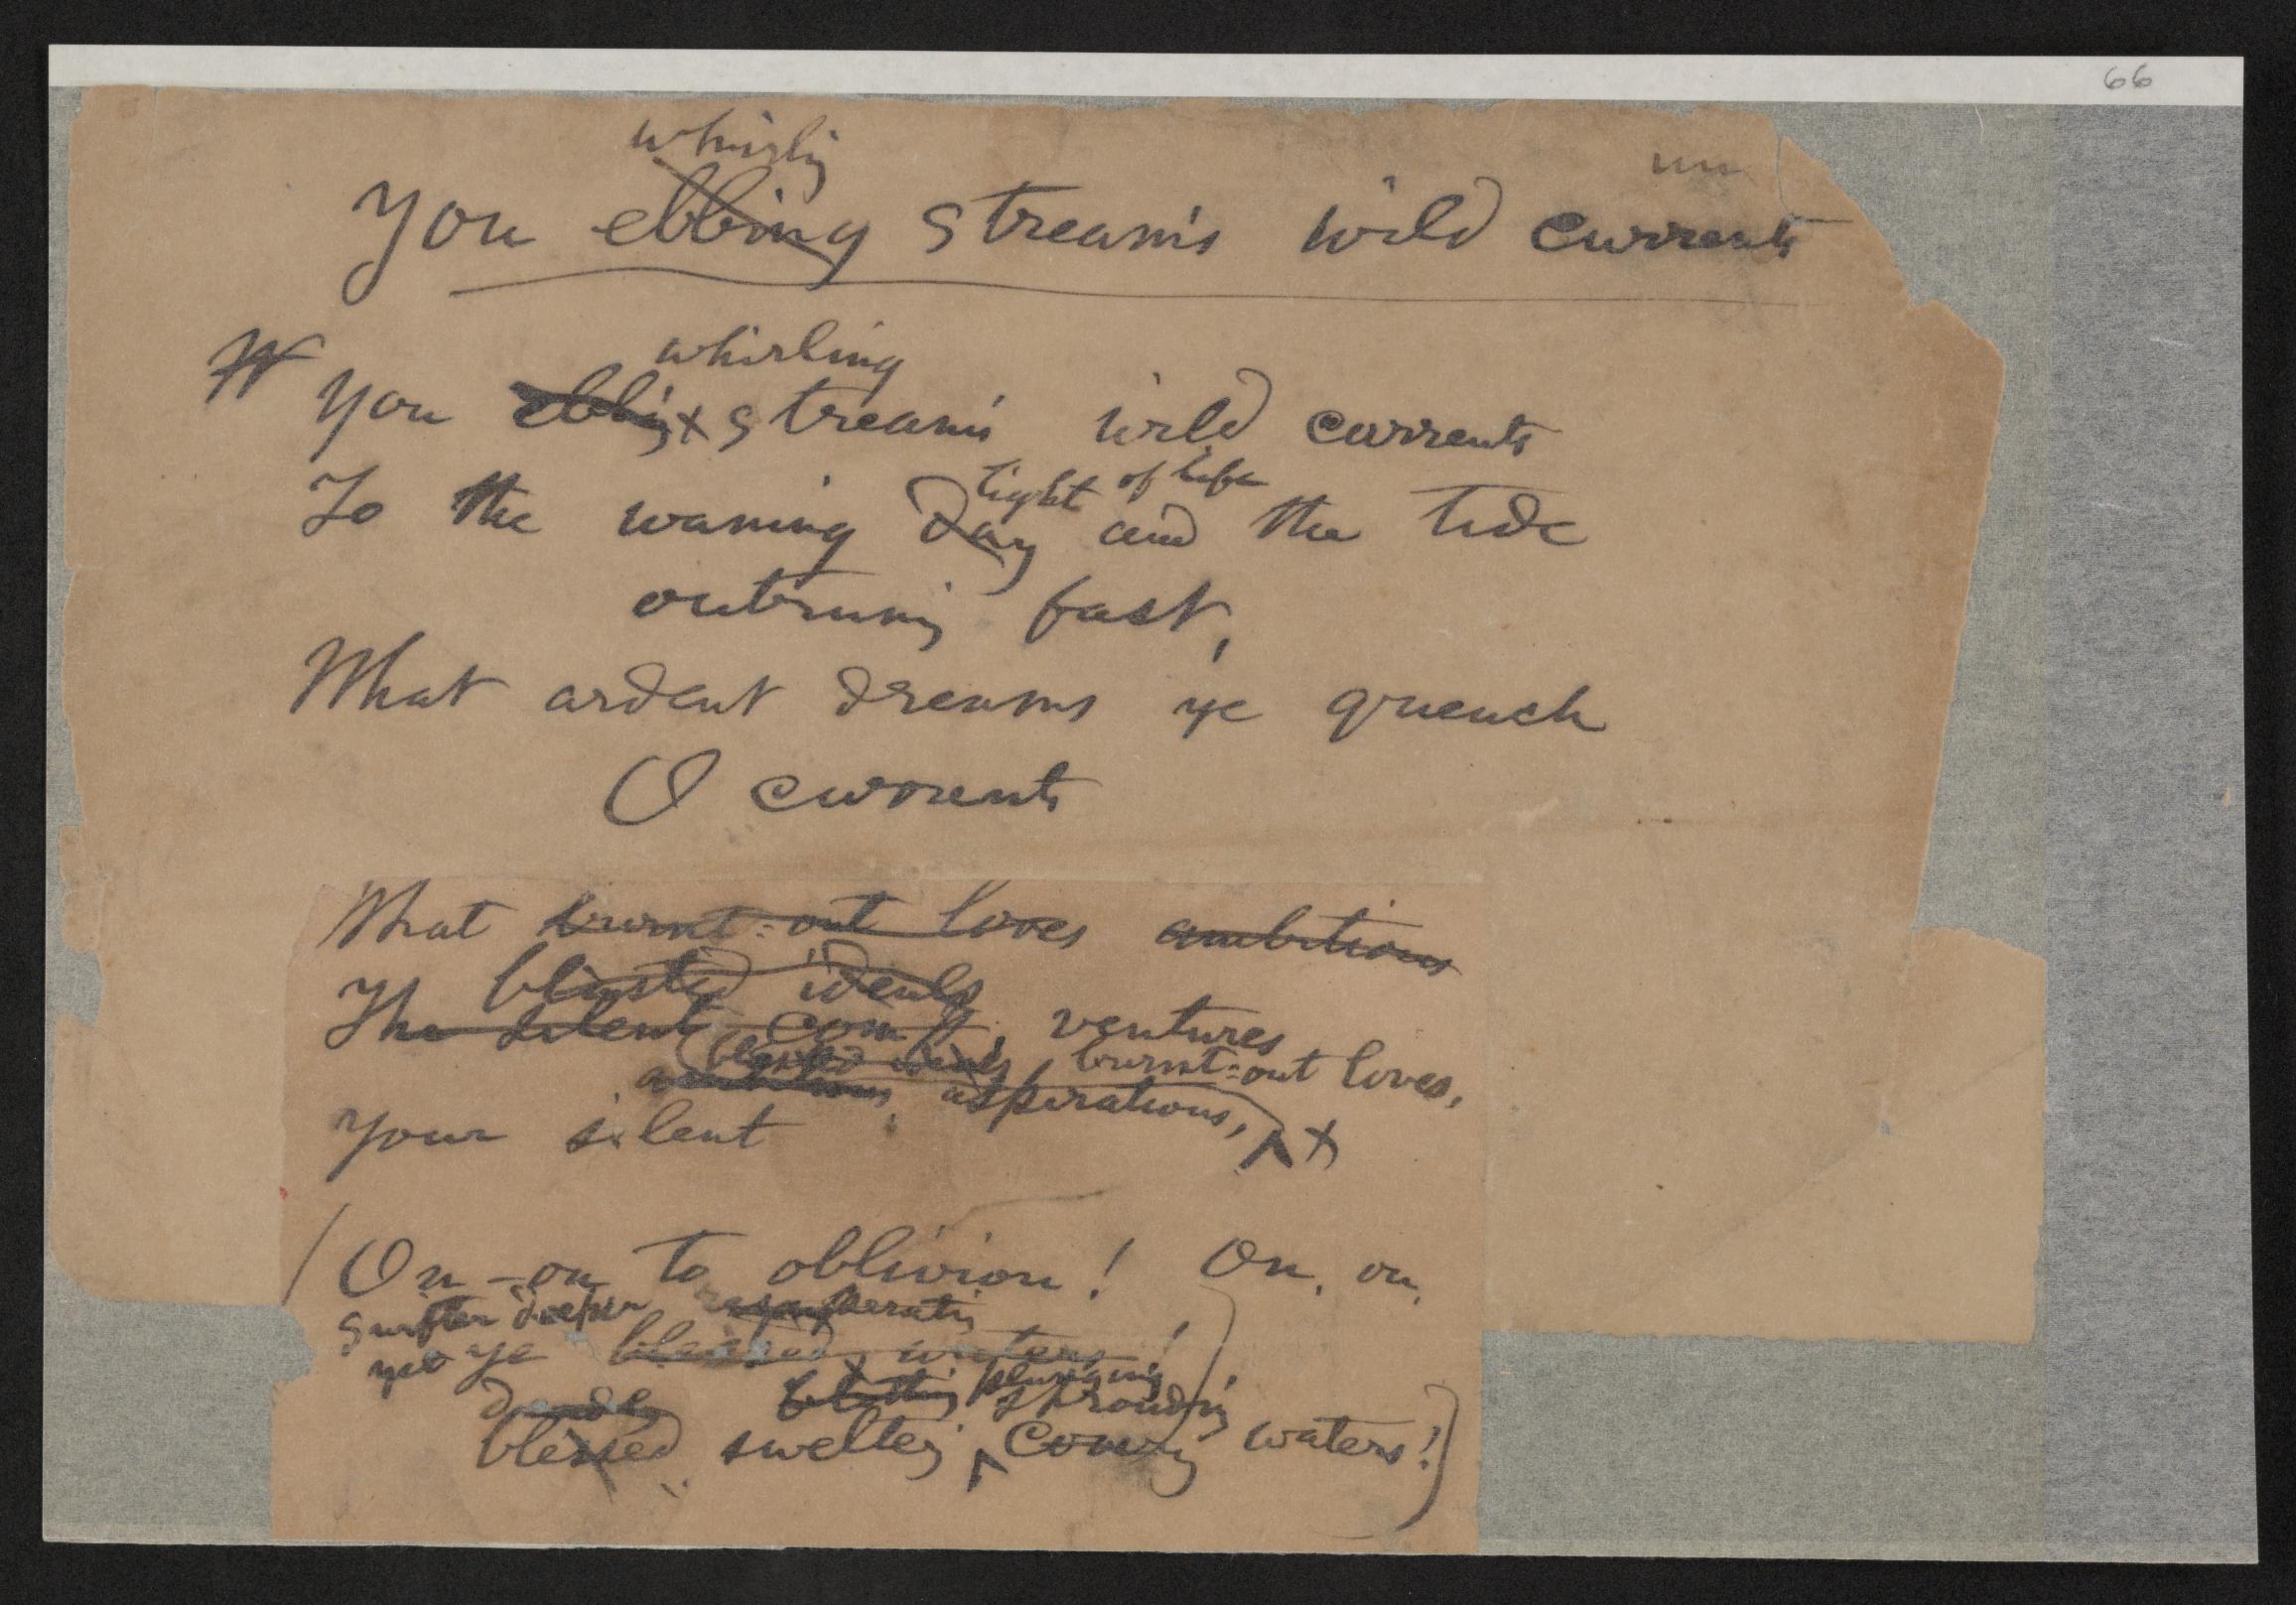 66
whirling
You ebbing streams wild currents
whirling
You ebbing x streams wild currents
light of life
To the waning day and the tide
outrunning fast,
What ardent dreams ye quench
O currents
What burnt-out loves ambitions
blasted ideals
The silent com ventures
blasted ideals, burnt-out loves,
ambitions aspirations,
Your silent ^ x
(On – on to oblivion! On, on,
swifter deeper
yet ye blessed waters!
plunging
deadly shrouding
blessed swelting ^ covering waters!)